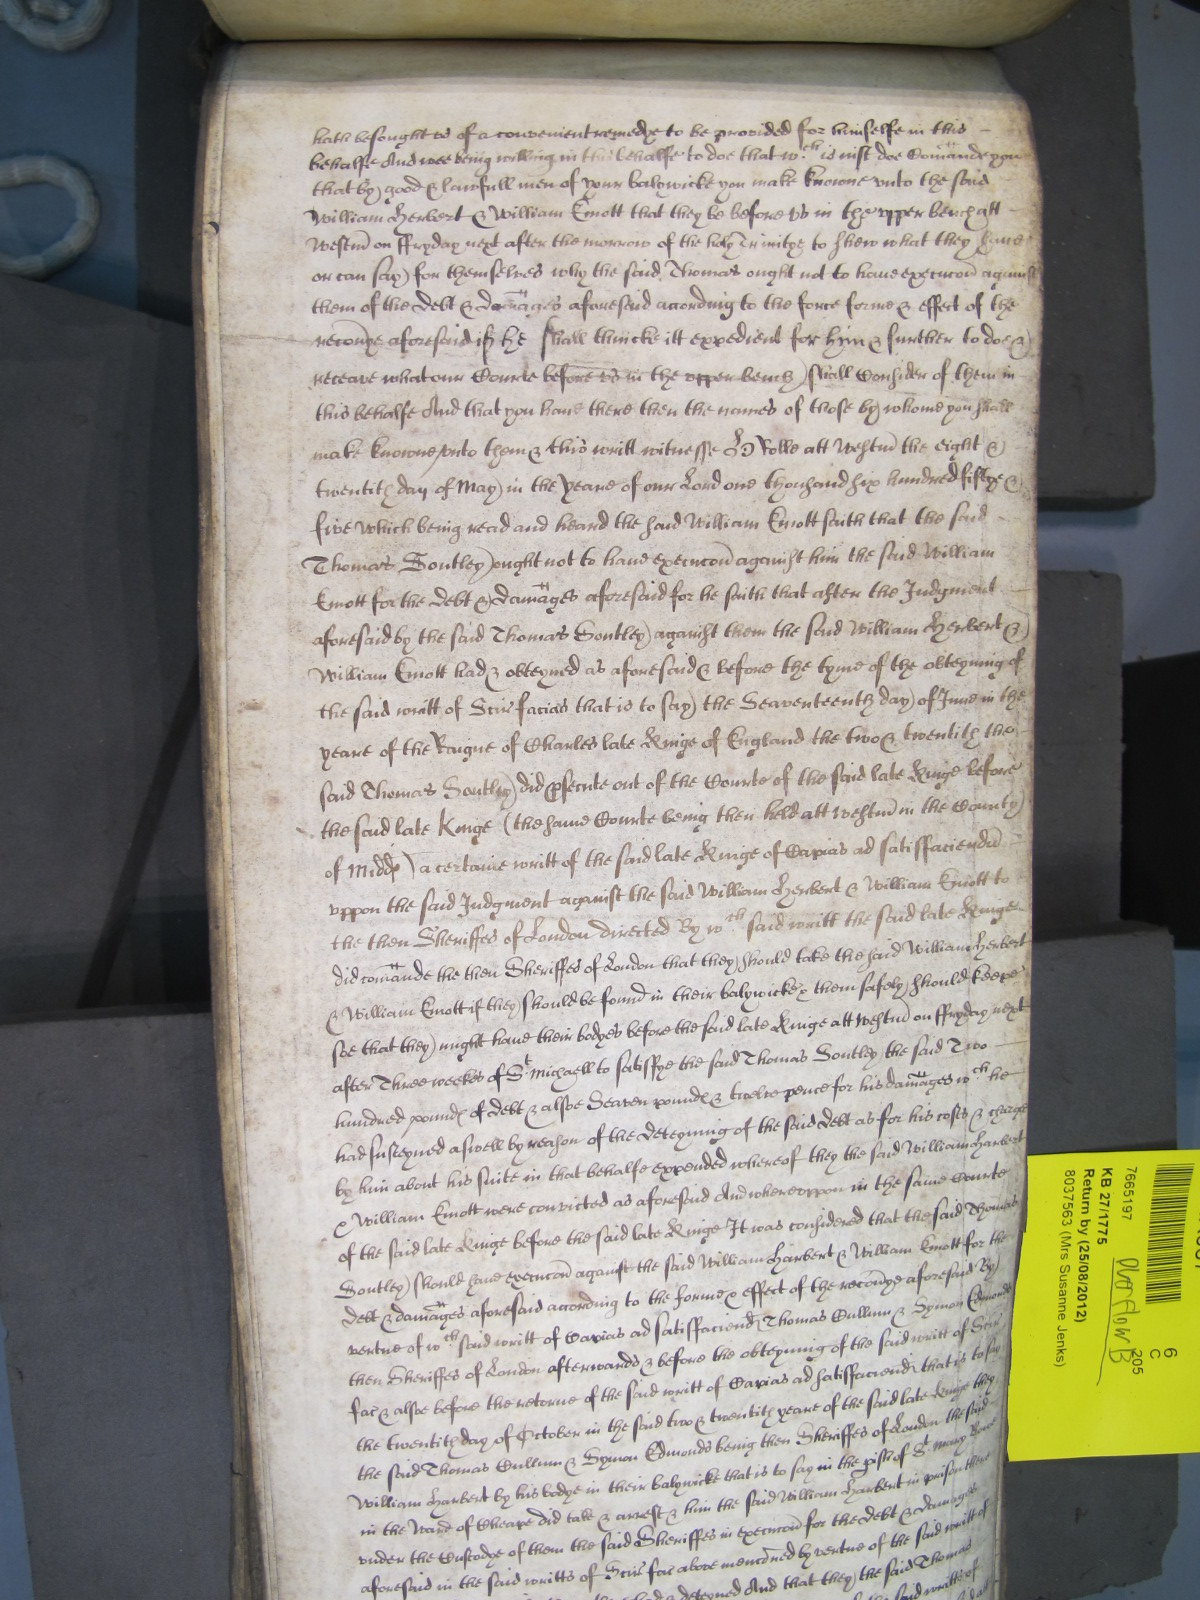 hath besought us of a convenient remedye to be provided for himselfe in this
behalfe And wee being willing in this behalfe to doe that wch is iust doe Comande you
that by good & lawfull men of your balywicke you make knowne unto the said
William Herbert & William Knott that they be before us in the upper bench att
Westm on ffryday next after the morrow of the holy Trinitye to shew what they have
or can say for themselves why the said Thomas ought not to have execucon against
them of the debt & damages aforesaid according to the force forme & effect of the
recoṽye aforesaid if he shall thincke itt expedient for him & further to doe &
receave what our Courte before us in the upper bench shall Consider of them in
this behalfe And that you have there then the names of those by whome you shall
make knowne unto them & this writt witnesse H Rolle att Westm the eight &
twentith day of May in the yeare of our Lord one thousand six hundred fiftye &
five which being read and heard the said William Knott saith that the said
Thomas Sontley ought not to have execucon against him the said William
Knott for the debt & damages aforesaid for he saith that after the Judgment
aforesaid by the said Thomas Sontley against them the said William Herbert &
William Knott had & obteyned as aforesaid & before the tyme of the obteyning of
the said writt of Scire facias that is to say the Seaventeenth day of June in the
yeare of the Raigne of Charles late Kinge of England the two & twentith the
said Thomas Sontley did psecute out of the Courte of the said late Kinge before
the said late Kinge (the same Courte being then held att Westm in the County
of Midd) a certaine writt of the said late Kinge of Capias ad satisfaciend
uppon the said Judgment against the said William Herbert & William Knott to
the then Sheriffes of London directed By wch said writt the said late Kinge
did comande the then Sheriffes of London that they should take the said William Herbert
& William Knott if they should be found in their balywicke & them safely should keepe
soe that they might have their bodyes before the said late Kinge att Westm on ffryday next
after Three weekes of St Michaell to satisfye the said Thomas Sontley the said Two
hundred pounds of debt & alsoe Seaven pounds & twelve pence for his damages wch he
had susteyned aswell by reason of the deteyning of the said debt as for his costs & charges
by him about his suite in that behalfe expended whereof they the said William Harbert
& William Knott were convicted as aforesaid And whereuppon in the same Courte
of the said late Kinge before the said late Kinge It was considered that the said Thomas
Sontley should have execucon against the said William Harbert & William Knott for the
debt & damages aforesaid according to the forme & effect of the recoṽye aforesaid By
vertue of wch said writt of Capias ad satisfaciend Thomas Cullum & Symon Edmonds
then Sheriffes of London afterwards & before the obteyning of the said writt of Scire
fac & alsoe before the returne of the said writt of Capias ad satisfaciend that is to say
the twentith day of October in the said two & twentith yeare of the said late Kinge they
the said Thomas Cullum & Symon Edmonds being then Sheriffes of London the said
William Harbert by his bodye in their balywicke that is to say in the pish of St Mary Bowe
in the Ward of Cheape did take & arrest & him the said William Harbert in prison there
under the Custodye of them the said Sheriffes in execucon for the debt & damages
aforesaid in the said writts of Scire fac above mencoñed by vertue of the said writt of
& deteyned And that they the said Thomas
the said writts of
7665197
KB 27/1775
Return by (25/08/2012)
8037563 (Mrs Susanne Jenks)
6
C
205